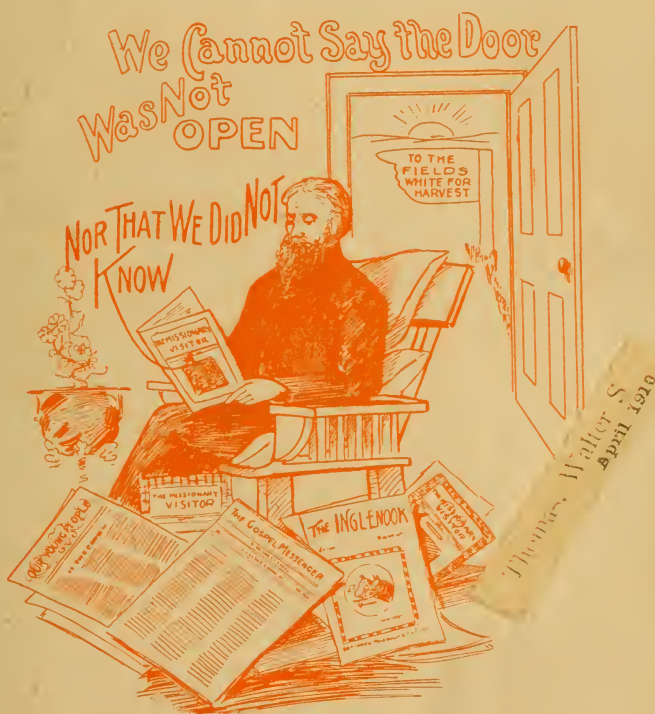 We Cannot Say the Door
Was Not
OPEN
TO THE
FIELDS
WHITE FOR
HARVEST
NOR THAT WE DID NOT
KNOW
THE MISSIONARY
VISITOR
THE MISSIONARY
VISITOR
OUR YOUNG PEOPLE
THE GOSPEL MESSENGER
THE INGLENOOK
MISSIONARY
VISITOR
Thomas, Walter S
April 1910